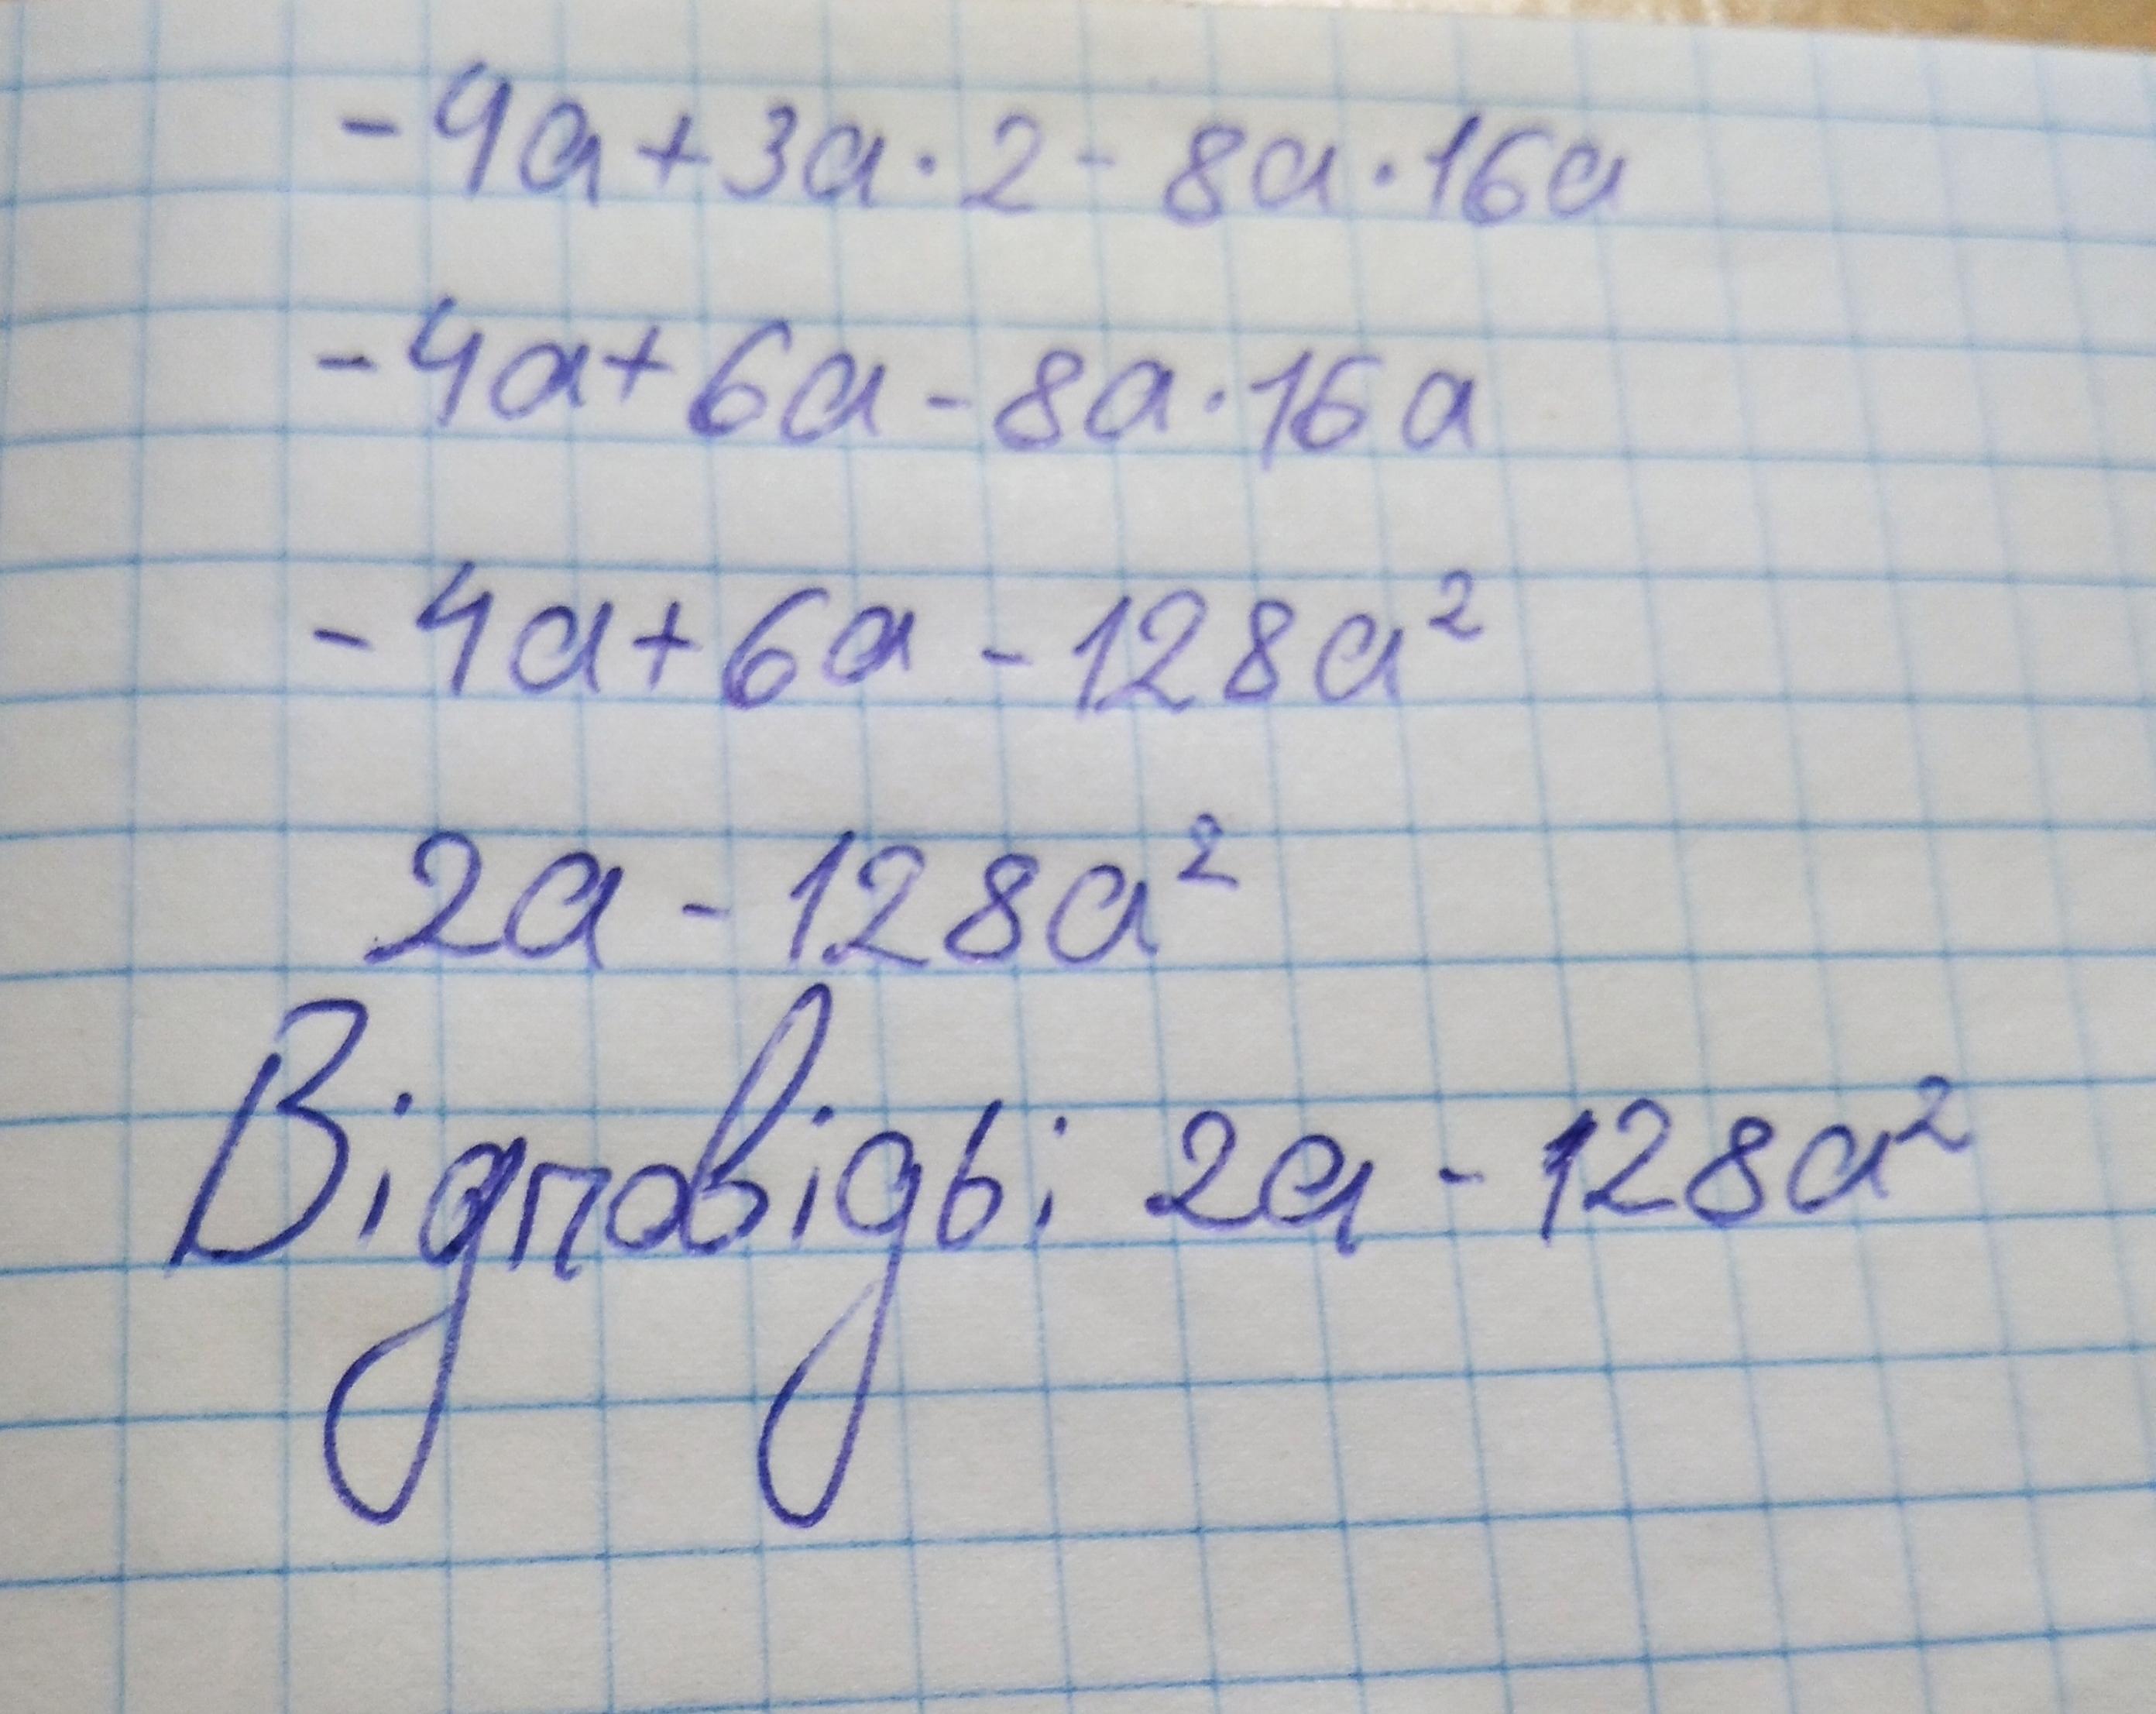 -4a+3a·2-8a·16a
-4a+6a-8a·16a
-4a+6a-128a²
2a-128a²
Відповідь: 2a-128a²